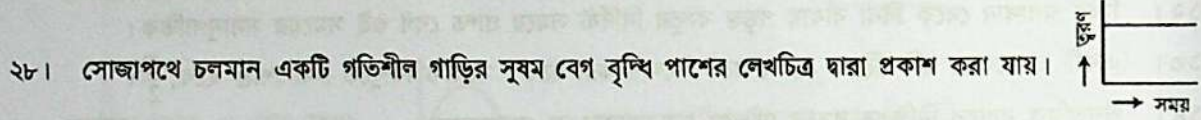 ২৮। সোজাপথে চলমান একটি গতিশীল গাড়ির সুষম বেগ বৃদ্ধি পাশের লেখচিত্র দ্বারা প্রকাশ করা যায়।
ত্বরণ
→ সময়